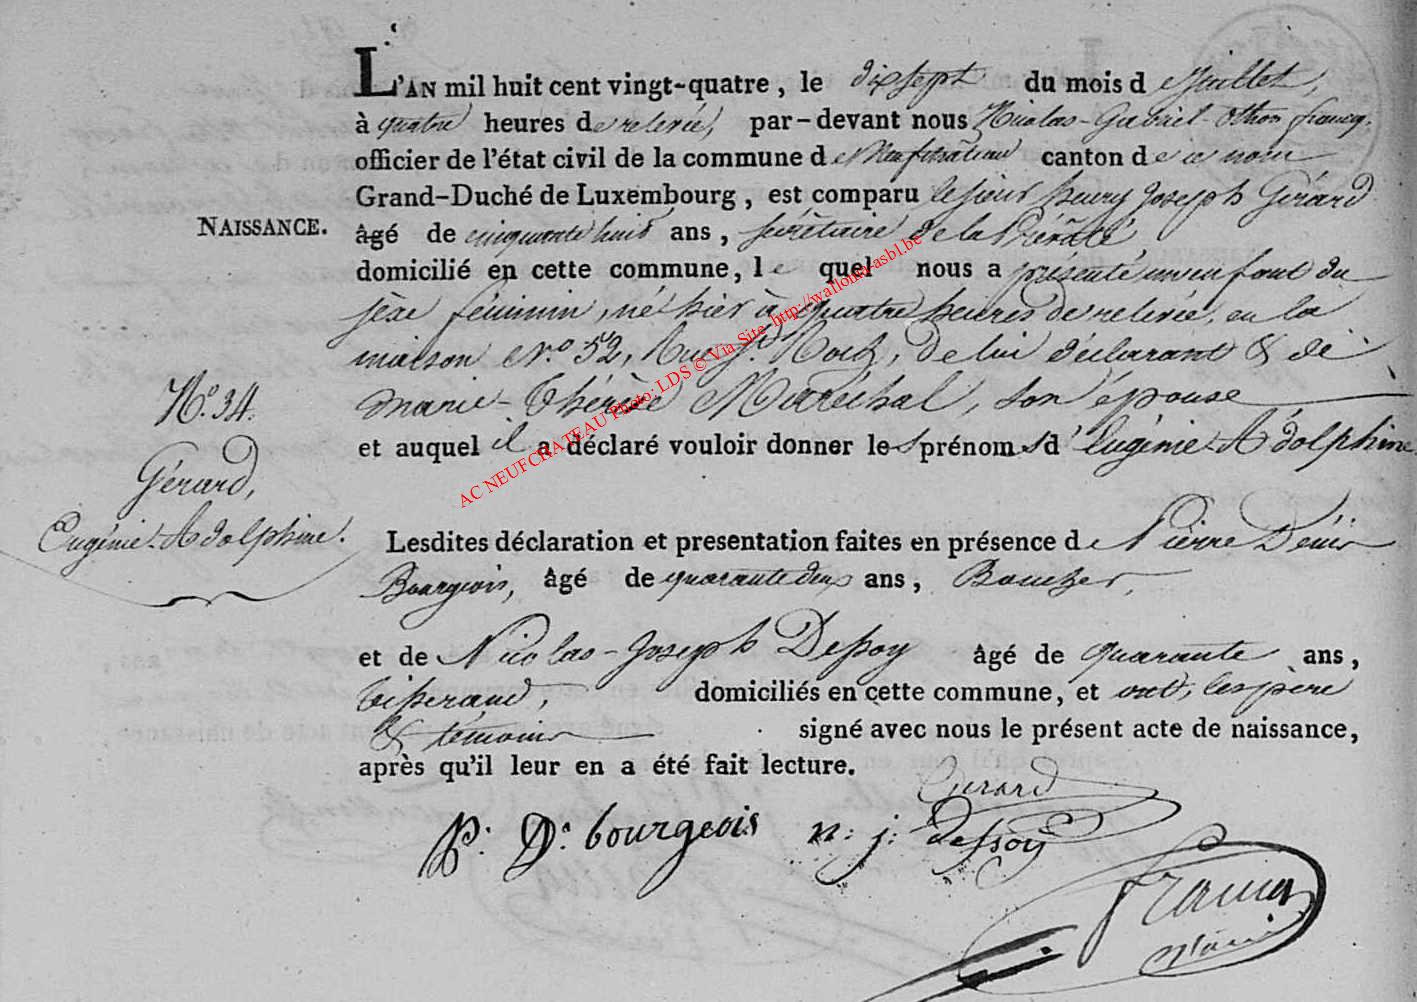 L'AN mil huit cent vingt-quatre, le dix sept du mois de Juillet,
à quatre heures de relevée, par-devant nous Nicolas-Gabriel-Othon Francq,
officier de l'état civil de la commune de Neufchâteau canton de ce nom
Grand-Duché de Luxembourg, est comparu le sieur henry Joseph Gérard
NAISSANCE.
âgé de cinquante huit ans, secrétaire de la
domicilié en cette commune, le quel nous a présenté un enfant du
sèxe féminin, né hier à quatre heures de relevée, en la
maison N.o 52, Rue St. Roch, de lui déclarant & de
marie-Thérèse Maréchal, son épouse
et auquel il a déclaré vouloir donner les prénoms d'Eugénie-Adolphine
No. 34.
Gérard,
Eugénie-Adolphine.
Lesdites déclaration et presentation faites en présence de Pierre Dénis
Bourgeois, âgé de quarante deux ans, Boucher,
et de Nicolas-Joseph Dessoy âgé de quarante ans,
tisserand, domiciliés en cette commune, et ont, les père
& témoins signé avec nous le présent acte de naissance,
après qu'il leur en a été fait lecture.
Gerard
P. D. bourgeois n: j: dessoy
Francq
AC NEUFCHATEAU Photo: LDS © Via Site http://wallonia-asbl.be